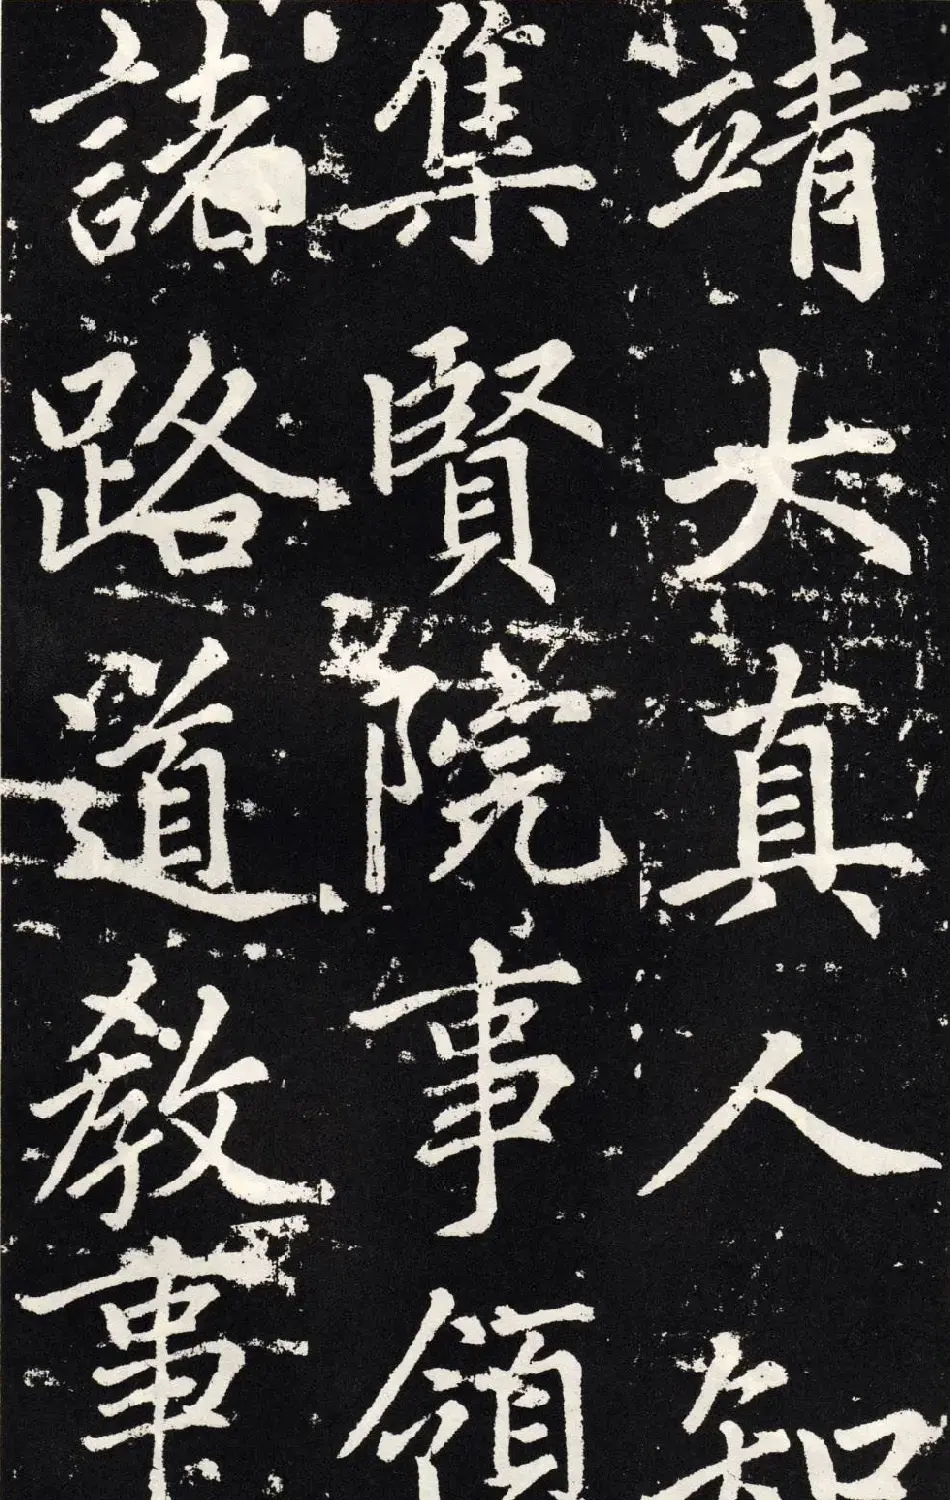 靖大真人知
集賢院事領
諸路道教事